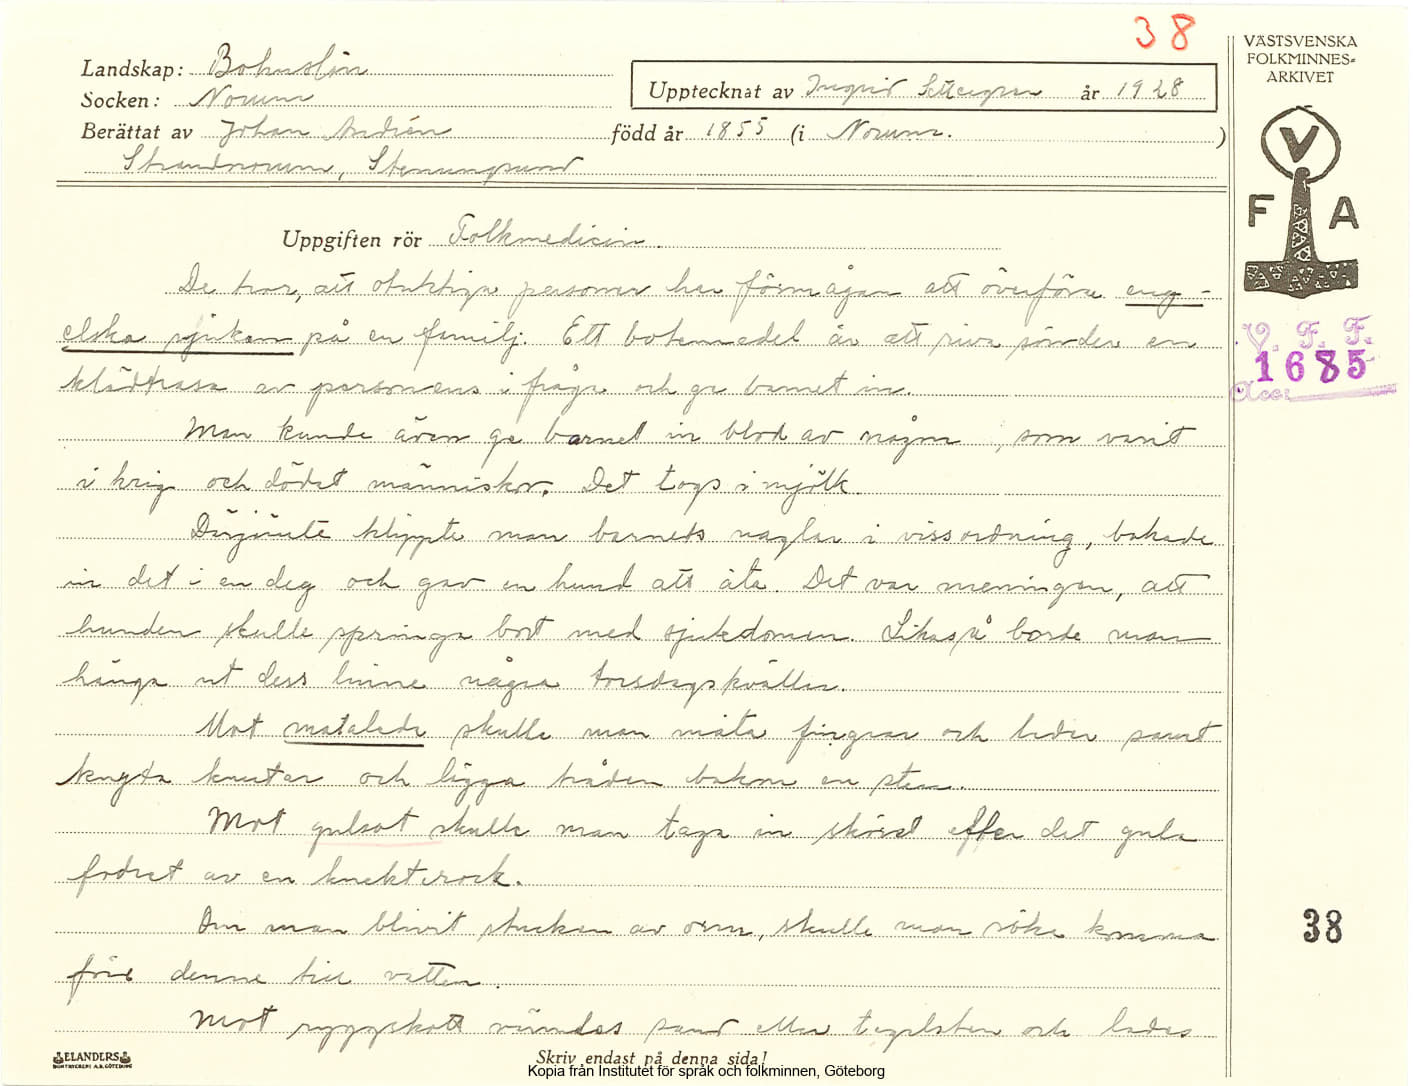 38
VÄSTSVENSKA
FOLKMINNES-
ARKIVET
Landskap: Bohuslän
Socken: Norum
Upptecknat av Ingrid år 1928
Berättat av Johan Andrén född år 1855 (i Norum. )
Strandnorum, Stenungsund
V
F A
Uppgiften rör Folkmedicin.
De tror, att otuktiga personer har förmågan att överföra eng-
elska sjukan på en familj. Ett botemedel är att riva sönder en
klädtrasa av personens i fråga och ge barnet in.
Man kunde även ge barnet in blod av någon, som varit
i krig och dödat människor. Det togs i mjölk.
Därjämte klippte man barnets naglar i viss ordning, bakade
in det i en deg och gav en hund att äta. Det var meningen, att
hunden skulle springa bort med sjukdomen. Likaså borde man
hänga ut dess linne några torsdagskvällar.
Mot matalede skulle man mäta fingrar och leder samt
knyta knutar och lägga tråden bakom en sten.
Mot gulsot skulle man taga in skavet efter det gula
fodret av en knektrock.
Om man blivit stucken av orm, skulle man söka komma
före denne till vatten.
Mot ryggskott värmdes sand eller tegelsten och lades
V. F. F.
1685
Acc:
38
ELANDERS
BOKTRYCKERI A.B. GÖTEBORG
Skriv endast på denna sida!
Kopia från Institutet för språk och folkminnen, Göteborg